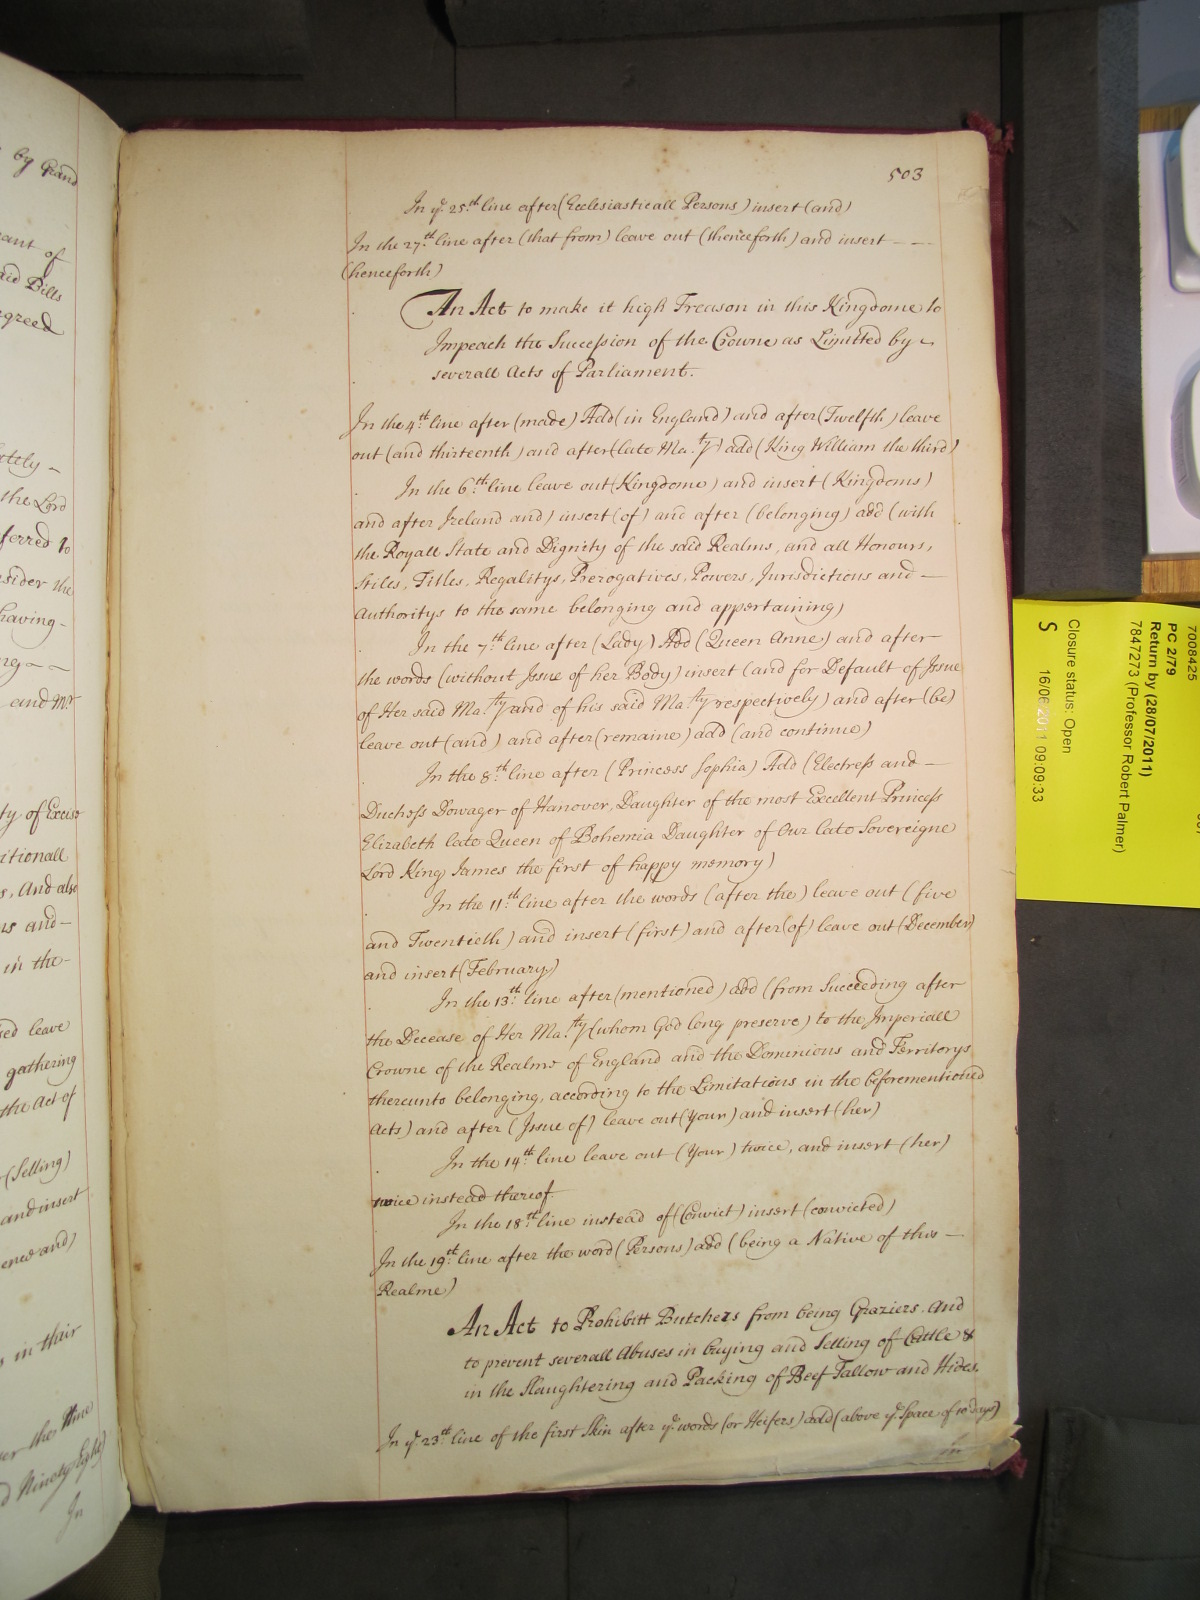 by Grand
ant of
aid Bills
greed
ttly -
the Lord
ferred to
sider the
having -
ng - -
and Mr
ty of Excise
itionall
s, And also
ns and -
in the -
sed leave
gathering
the Act of
(Selling)
and insert
ened and)
s in their
er the time
d Ninety Eight)
In
503
In ye. 25th. line after (Ecclesiasticall Persons) insert (and)
In the 27th. line after (that from) leave out (thenceforth) and insert - - -
(henceforth)
An Act to make it high Treason in this Kingdome to
Impeach the Succession of the Crowne as Limitted by -
severall Acts of Parliament.
In the 4th. line after (made) Add (in England) and after (Twelfth) leave
out (and thirteenth) and after (late Ma:ty) add (King William the third)
In the 6th. line leave out (Kingdome) and insert (Kingdoms)
and after Ireland and) insert (of) and after (belonging) add (with
the Royall State and Dignity of the said Realms, and all Honours,
Stiles, Titles, Regalitys, Prerogatives, Powers, Jurisdictions and -
Authoritys to the same belonging and appertaining)
In the 7th. line after (Lady) Add (Queen Anne) and after -
the words (without Issue of her Body) insert (and for Default of Issue
of Her said Ma:ty and of his said Ma:ty respectively) and after (be)
leave out (and) and after (remaine) add (and continue)
In the 8th. line after (Princess Sophia) Add (Electress and -
Duchess Dowager of Hanover, Daughter of the most Excellent Princess
Elizabeth late Queen of Bohemia Daughter of Our late Sovereigne
Lord King James the first of happy memory)
In the 11th. line after the words (after the) leave out (five
and Twentieth) and insert (first) and after (of) leave out (December)
and insert (February)
In the 13th. line after (mentioned) add (from Succeeding after
the Decease of Her Ma:ty (whom God long preserve) to the Imperiall
Crowne of the Realme of England and the Dominions and Territorys
thereunto belonging, according to the Limitations in the beforementioned
Acts) and after (Issue of) leave out (Your) and insert (her)
In the 14th. line leave out (Your) twice, and insert (her)
twice instead thereof.
In the 18th. line instead of (Convict) insert (convicted)
In the 19th. line after the word (Persons) add (being a Native of this -
Realme)
An Act to Prohibitt Butchers from being Graziers. And
to prevent severall Abuses in buying and Selling of Cattle &
in the Slaughtering and Packing of Beef Tallow and Hides.
In ye. 23th. line of the first Skin after ye. words (or Heifers) add (above ye. Space of 10 days)
In
7008425
PC 2/79
Return by (28/07/2011)
7847273 (Professor Robert Palmer)
Closure status: Open
S 16/06/2011 09:09:33